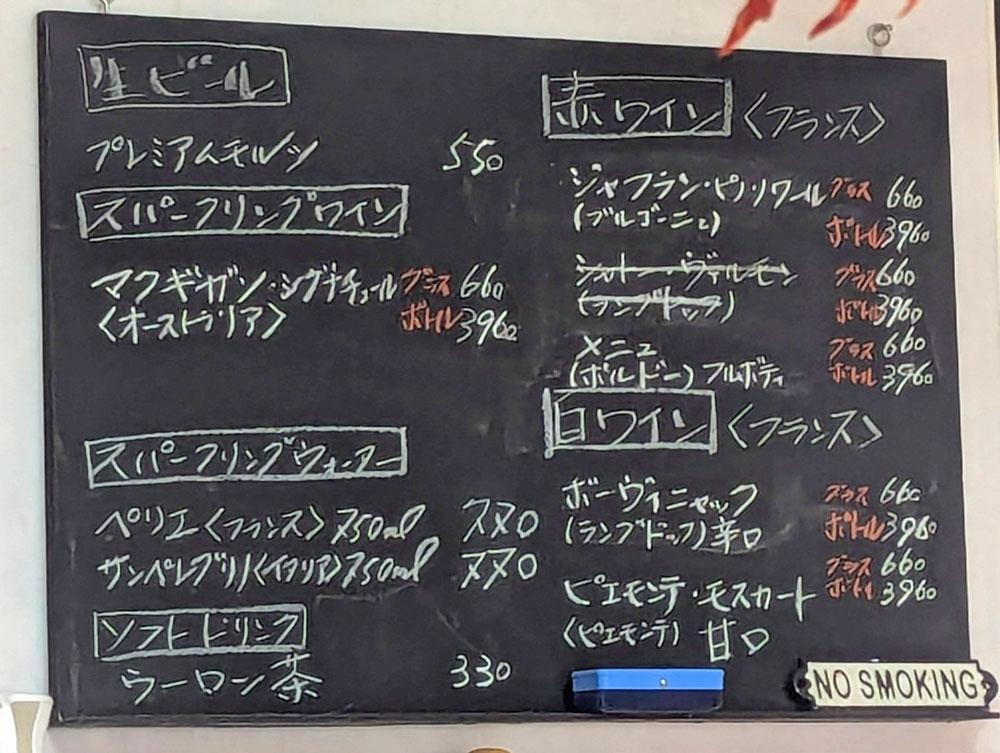 生ビール
プレミアムモルツ 550
スパークリングワイン
マクギガン・シグナチュール グラス 660
〈オーストラリア〉 ボトル 3960
スパークリングウォーター
ペリエ〈フランス〉750ml 770
サンペレグリノ〈イタリア〉750ml 770
ソフトドリンク
ウーロン茶 330
赤ワイン〈フランス〉
ジャフラン・ピノノワール グラス 660
(ブルゴーニュ) ボトル 3960
シャトー・ヴァルモン グラス 660
(ラングドック) ボトル 3960
メニュ グラス 660
(ボルドー) フルボディ ボトル 3960
白ワイン〈フランス〉
ボーヴィニャック グラス 660
(ラングドック) 辛口 ボトル 3960
グラス 660
ピエモンテ・モスカート ボトル 3960
〈ピエモンテ〉 甘口
NO SMOKING